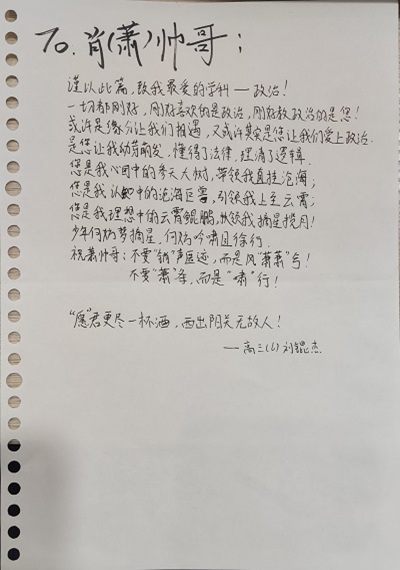 To. 肖(萧)帅哥：
谨以此篇，致我最爱的学科——政治！
一切都刚好，刚好喜欢的是政治，刚好教政治的是您！
或许是缘分让我们相遇，又或许其实是您让我们爱上政治.
是您让我幼芽萌发，懂得了法律，理清了逻辑.
您是我心田中的参天大树，带领我直挂沧海；
您是我认知中的沧海巨鲨，引领我上至云霄；
您是我理想中的云霄鲲鹏，扶领我摘星揽月！
少年何妨梦摘星，何妨吟啸且徐行.
祝萧帅哥：不要“销”声匿迹，而是风“萧萧”兮！
不要“萧”条，而是“啸”行！
“愿”君更尽一杯酒，西出阳关无故人！
——高三(6) 刘锟杰